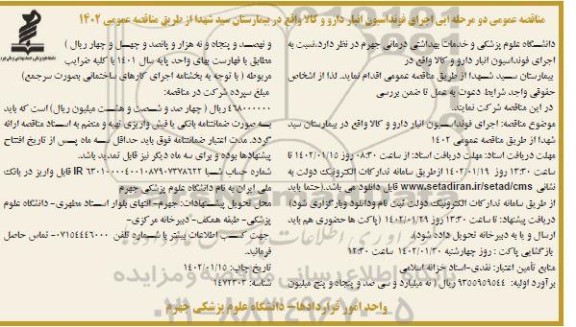 مناقصه عمومی دو مرحله ایی اجرای فونداسیون انبار دارو و کالا واقع در بیمارستان سید شهدا از طریق مناقصه عمومی ۱۴۰۲
دانشگاه علوم پزشکی و خدمات بهداشتی درمانی جهرم در نظر دارد.نسبت به
اجرای فونداسیون انبار دارو و کالا واقع در
بیمارستان سید شهدا از طریق مناقصه عمومی اقدام نماید. لذا از اشخاص
حقوقی واجد شرایط دعوت به عمل تا ضمن بررسی
در این مناقصه شرکت نمایند.
موضوع مناقصه: اجرای فونداسیون انبار دارو و کالا واقع در بیمارستان سید
شهدا از طریق مناقصه عمومی ۱۴۰۲
مهلت دریافت اسناد: مهلت دریافت اسناد: از ساعت ۰۸:۳۰ روز ۱۴۰۲/۰۱/۱۵ تا
ساعت ۱۳:۳۰ روز ۱۴۰۲/۰۱/۱۹ ازطریق سامانه تدارکات الکترونیک دولت به
نشانی www.setadiran.ir/setad/cms قابل دانلود می باشد.(حتما باید
از طریق سامانه تدارکات الکترونیک دولت ثبت نام ودانلود وبارگزاری شود)
مهلت دریافت پیشنهاد: تا ساعت ۱۳:۳۰ روز ۱۴۰۲/۰۱/۲۹ (پاکت ها حضوری هم باید
ارسال و یا به دبیرخانه تحویل داده شود).
بازگشایی پاکت : روز چهارشنبه ۱۴۰۲/۰۱/۳۰ ساعت ۱۲:۳۰
منابع تأمین اعتبار: نقدی-اسناد خزانه اسلامی
برآورد اولیه: ۹۳۵۵۹۵۹۵۴۴ ریال ( نه میلیارد و سی صد و پنجاه و پنج میلیون
و نهصد و پنجاه و نه هزار و پانصد و چهل و چهار ریال )
مطابق با فهارست بهای واحد پایه سال ۱۴۰۱ با کلیه ضرایب
مربوطه ( با توجه به بخشنامه اجرای کارهای ساختمانی بصورت سرجمع)
مبلغ سپرده شرکت در مناقصه:
۴۶۸۰۰۰۰۰۰ ریال ( چهار صد و شصت و هشت میلیون ریال) است که باید
به صورت ضمانتنامه بانکی یا فیش واریزی تهیه و منضم به اسناد مناقصه ارائه
گردد. مدت اعتبار ضمانتنامه فوق باید حداقل سه ماه پس از تاریخ افتتاح
پیشنهادها بوده و برای سه ماه دیگر نیز قابل تمدید باشد.
قابل واریز در بانک
ملی ایران به نام دانشگاه علوم پزشکی جهرم
محل تحویل پیشنهادات: جهرم- انتهای بلوار استاد مطهری- دانشگاه علوم
پزشکی- طبقه همکف- دبیرخانه مرکزی-
جهت کسب اطلاعات بیشتر با شماره تلفن ۰۷۱۵۴۴۴۶۰۰۰ تماس حاصل
فرمائید.
تاریخ چاپ: ۱۴۰۲/۰۱/۱۵
شناسه: ۱۴۷۲۳۰۳
واحد امور قراردادها- دانشگاه علوم پزشکی جهرم